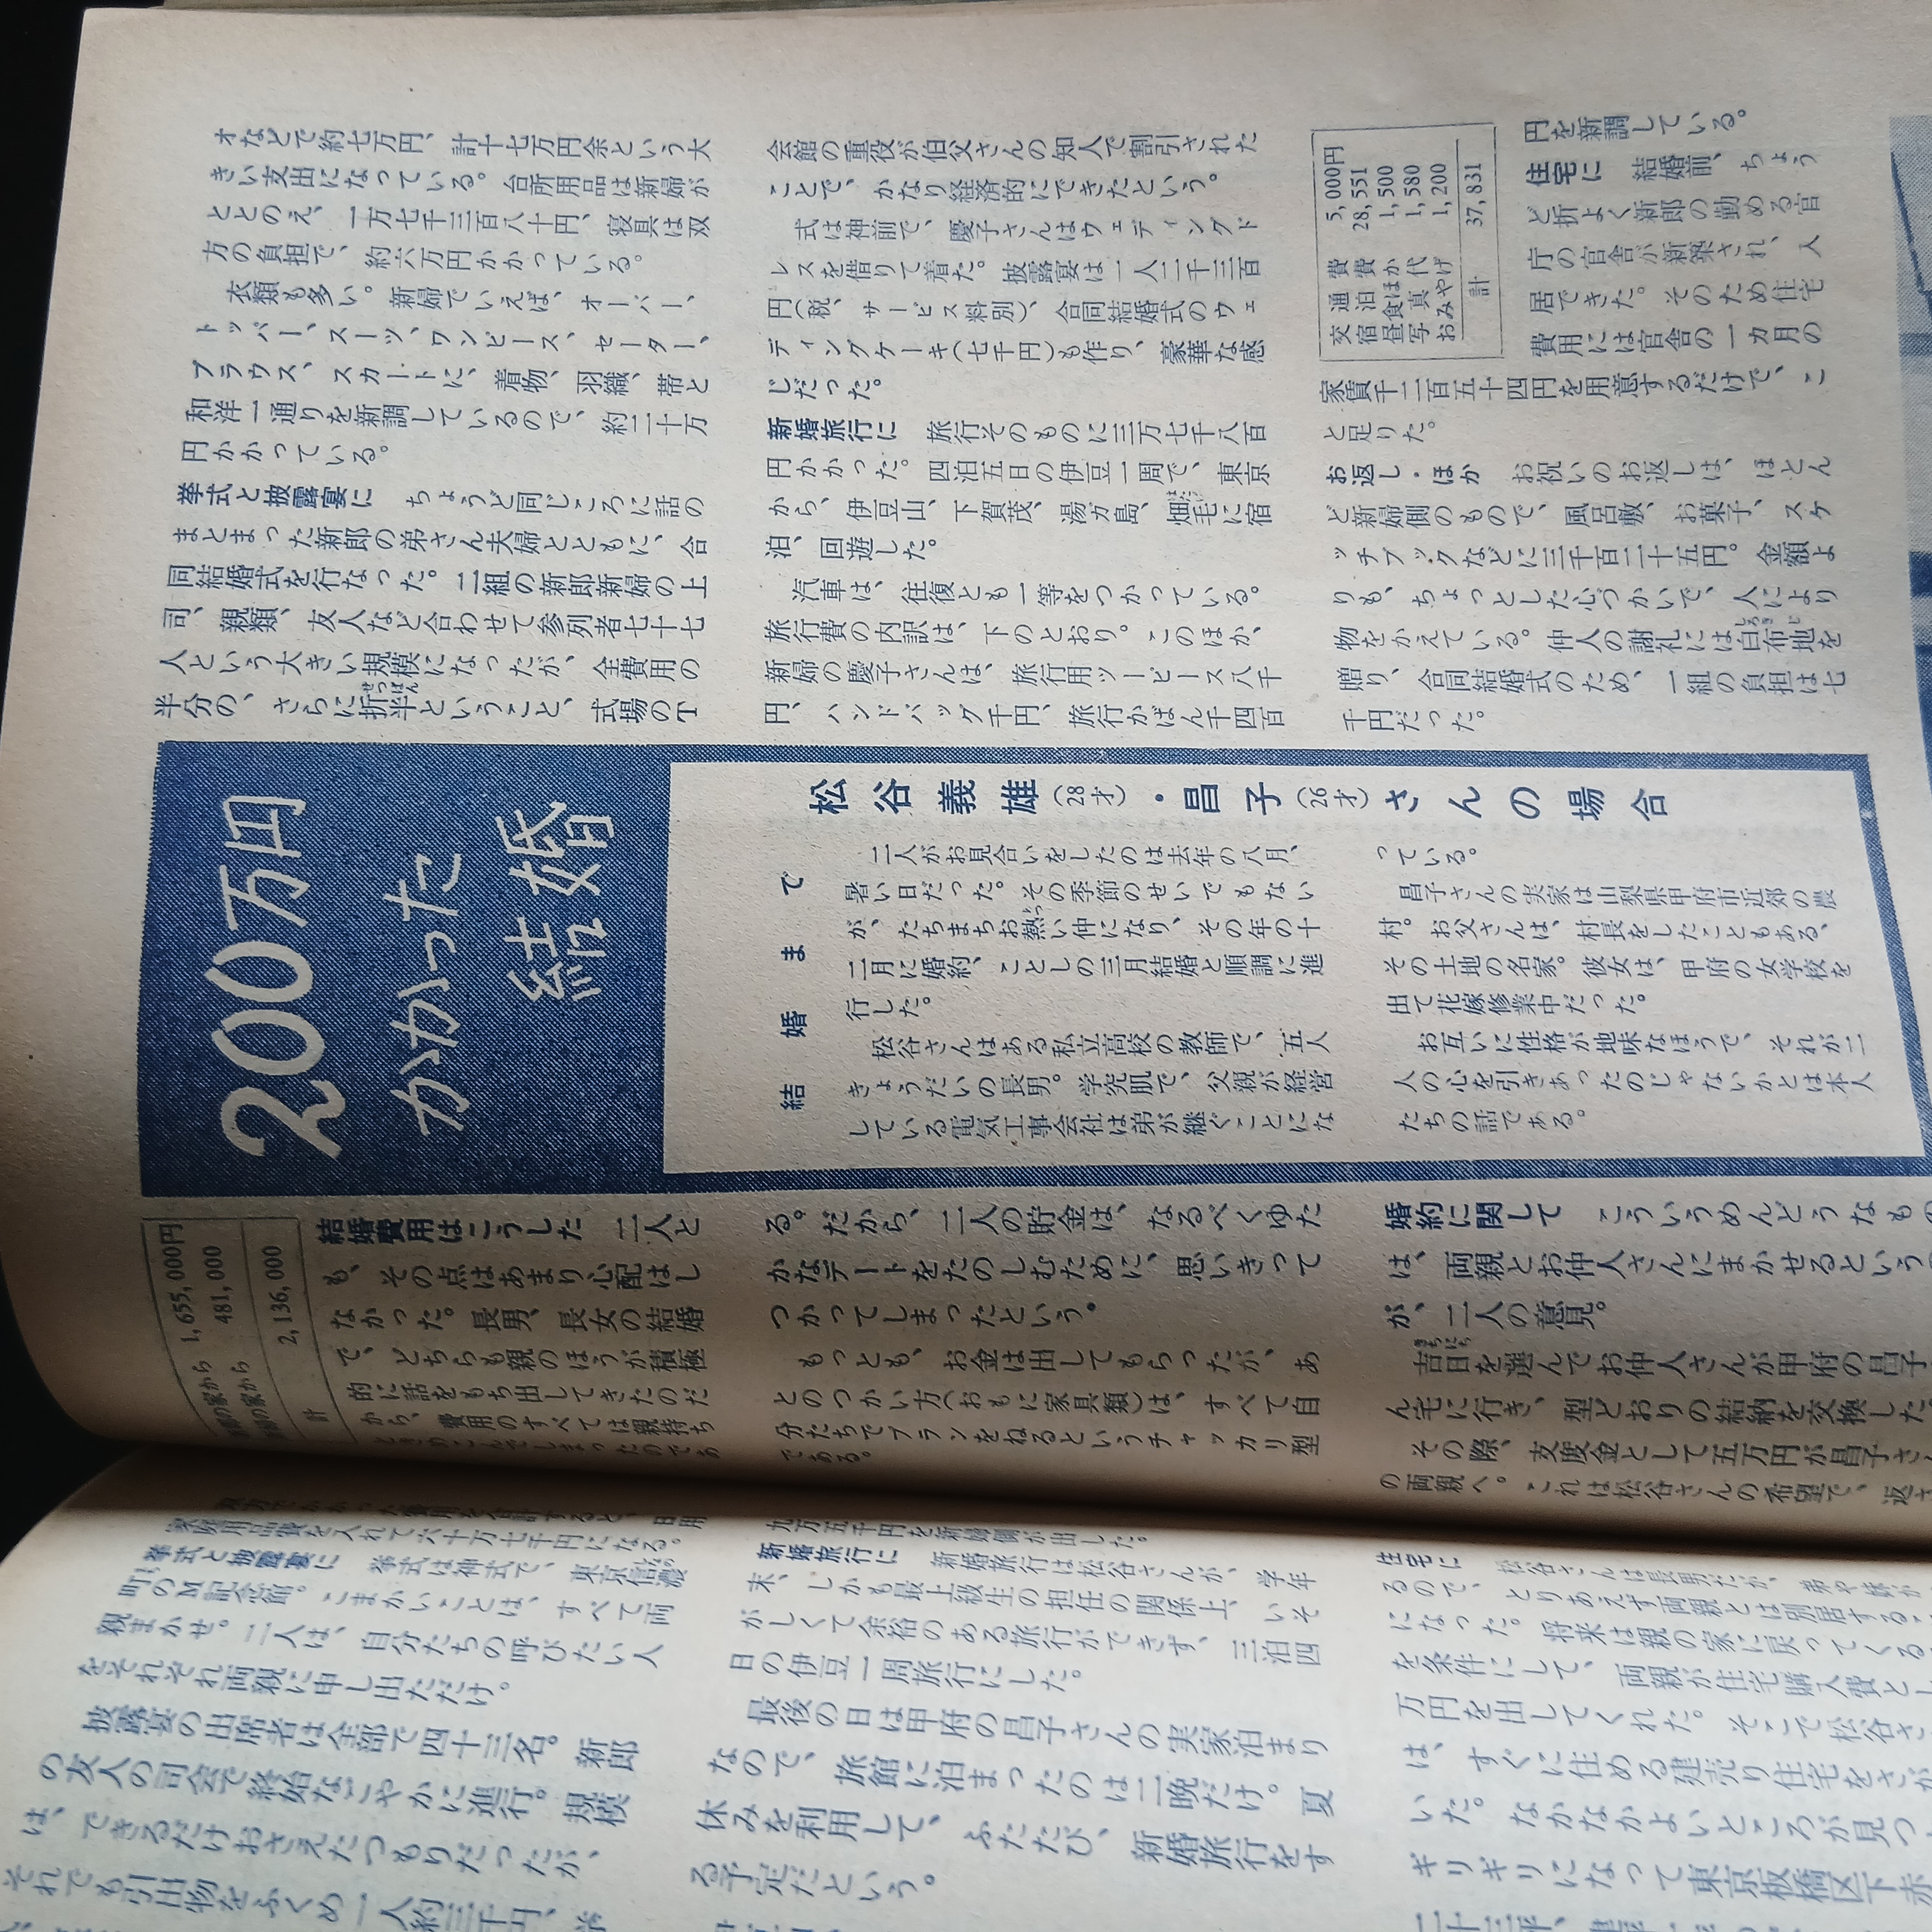 オなどで約七万円、計十七万円余という大
きい支出になっている。台所用品は新婦が
ととのえ、一万七千三百八十円、寝具は双
方の負担で、約六万円かかっている。
衣類も多い。新婦でいえば、オーバー、
トッパー、スーツ、ワンピース、セーター、
ブラウス、スカートに、着物、羽織、帯と
和洋一通りを新調しているので、約二十万
円かかっている。
挙式と披露宴に　ちょうど同じころに話の
まとまった新郎の弟さん夫婦とともに、合
同結婚式を行なった。二組の新郎新婦の上
司、親類、友人など合わせて参列者七十七
人という大きい規模になったが、全費用の
半分の、さらに折半ということ、式場のT
会館の重役が伯父さんの知人で割引された
ことで、かなり経済的にできたという。
式は神前で、慶子さんはウェディングド
レスを借りて着た。披露宴は一人二千三百
円(税、サービス料別)、合同結婚式のウェ
ディングケーキ(七千円)も作り、豪華な感
じだった。
新婚旅行に　旅行そのものに三万七千八百
円かかった。四泊五日の伊豆一周で、東京
から、伊豆山、下賀茂、湯ガ島、畑毛に宿
泊、回遊した。
汽車は、往復とも一等をつかっている。
旅行費の内訳は、下のとおり。このほか、
新婦の慶子さんは、旅行用ツーピース八千
円、ハンドバッグ千円、旅行かばん千四百
円を新調している。
交通費 5,000円
宿泊費 28,551
昼食ほか 1,500
写真代 1,580
おみやげ 1,200
計 37,831
住宅に　結婚前、ちょう
ど折よく新郎の勤める官
庁の官舎が新築され、入
居できた。そのため住宅
費用には官舎の一カ月の
家債千二百五十四円を用意するだけで、こ
と足りた。
お返し・ほか　お祝いのお返しは、ほとん
ど新婦側のもので、風呂敷、お菓子、スケ
ッチブックなどに三千百二十五円。金額よ
りも、ちょっとした心づかいで、人により
物をかえている。仲人の謝礼には白布地を
贈り、合同結婚式のため、一組の負担は七
千円だった。
200万円
かかった
結婚
松谷義雄(28才)・昌子(26才)さんの場合
結婚まで
二人がお見合いをしたのは去年の八月、
暑い日だった。その季節のせいでもない
が、たちまちお熱い仲になり、その年の十
二月に婚約、ことしの三月結婚と順調に進
行した。
松谷さんはある私立高校の教師で、五人
きょうだいの長男。学究肌で、父親が経営
している電気工事会社は弟が継ぐことにな
っている。
昌子さんの実家は山梨県甲府市近郊の農
村。お父さんは、村長をしたこともある、
その土地の名家。彼女は、甲府の女学校を
出て花嫁修業中だった。
お互いに性格が地味なほうで、それが二
人の心を引きあったのじゃないかとは本人
たちの話である。
の家から 1,655,000円
の家から 481,000
計 2,136,000
結婚費用はこうした　二人と
も、その点はあまり心配はし
なかった。長男、長女の結婚
で、どちらも親のほうが積極
的に話をもち出してきたのだ
から、費用のすべては親持ち
ときめこんでしまったのであ
る。だから、二人の貯金は、なるべくゆた
かなデートをたのしむために、思いきって
つかってしまったという。
もっとも、お金は出してもらったが、あ
とのつかい方(おもに家具類)は、すべて自
分たちでプランをねるというチャッカリ型
である。
婚約に関して　こういうめんどうなもの
は、両親とお仲人さんにまかせるという
が、二人の意見。
吉日を選んでお仲人さんが甲府の昌子
ん宅に行き、型どおりの結納を交換した
その際、支度金として五万円が昌子さ
の両親へ。これは松谷さんの希望で、返さ
を入れて六十万七千円になる。
挙式と披露宴に　挙式は神式で、東京信濃
町のM記念館。こまかいことは、すべて両
親まかせ。二人は、自分たちの呼びたい人
をそれぞれ両親に申し出ただけ。
披露宴の出席者は全部で四十三名。新郎
の友人の司会で終始なごやかに進行。規模
は、できるだけおさえたつもりだったが、
それでも引出物をふくめ一人約三千円、
九万五千円を新婦側が出した。
新婚旅行に　新婚旅行は松谷さんが、学年
末、しかも最上級生の担任の関係上、いそ
がしくて余裕のある旅行ができず、三泊四
日の伊豆一周旅行にした。
最後の日は甲府の昌子さんの実家泊まり
なので、旅館に泊まったのは二晩だけ。夏
休みを利用して、ふたたび、新婚旅行をす
る予定だという。
住宅に　松谷さんは長男だが、弟や妹が
るので、とりあえず両親とは別居する
になった。将来は親の家に戻ってくる
を条件にして、両親が住宅購入費とし
万円を出してくれた。そこで松谷さ
は、すぐに住める建売り住宅をさが
いた。なかなかよいところが見つ
ギリギリになって東京板橋区下赤